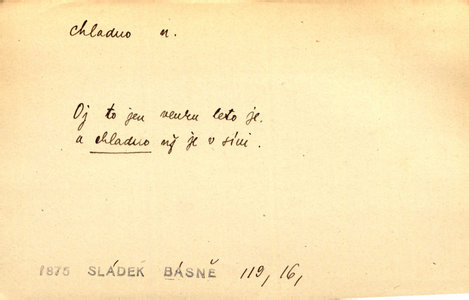 chladno n.
Oj to jen venku leto je.
a chladno už je v síni.
1875 SLÁDEK BÁSNĚ 119, 16,